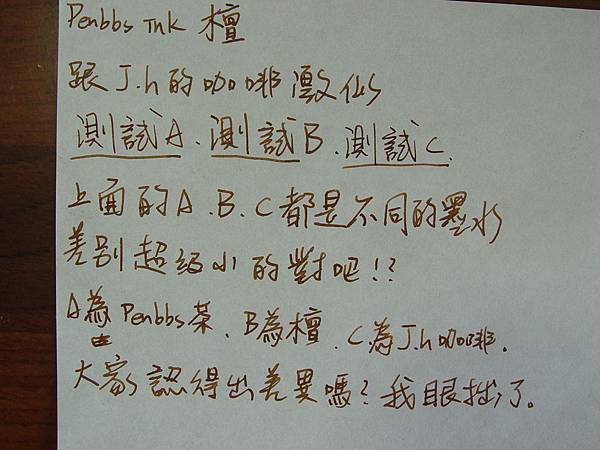 Penbbs ink 檀
跟J.h的咖啡激似
測試A.測試B.測試C.
上面的A.B.C都是不同的墨水
差別超級小的對吧!?
A為Penbbs茶.B為檀.C為J.h咖啡.
大家認得出差異嗎?我眼拙了。